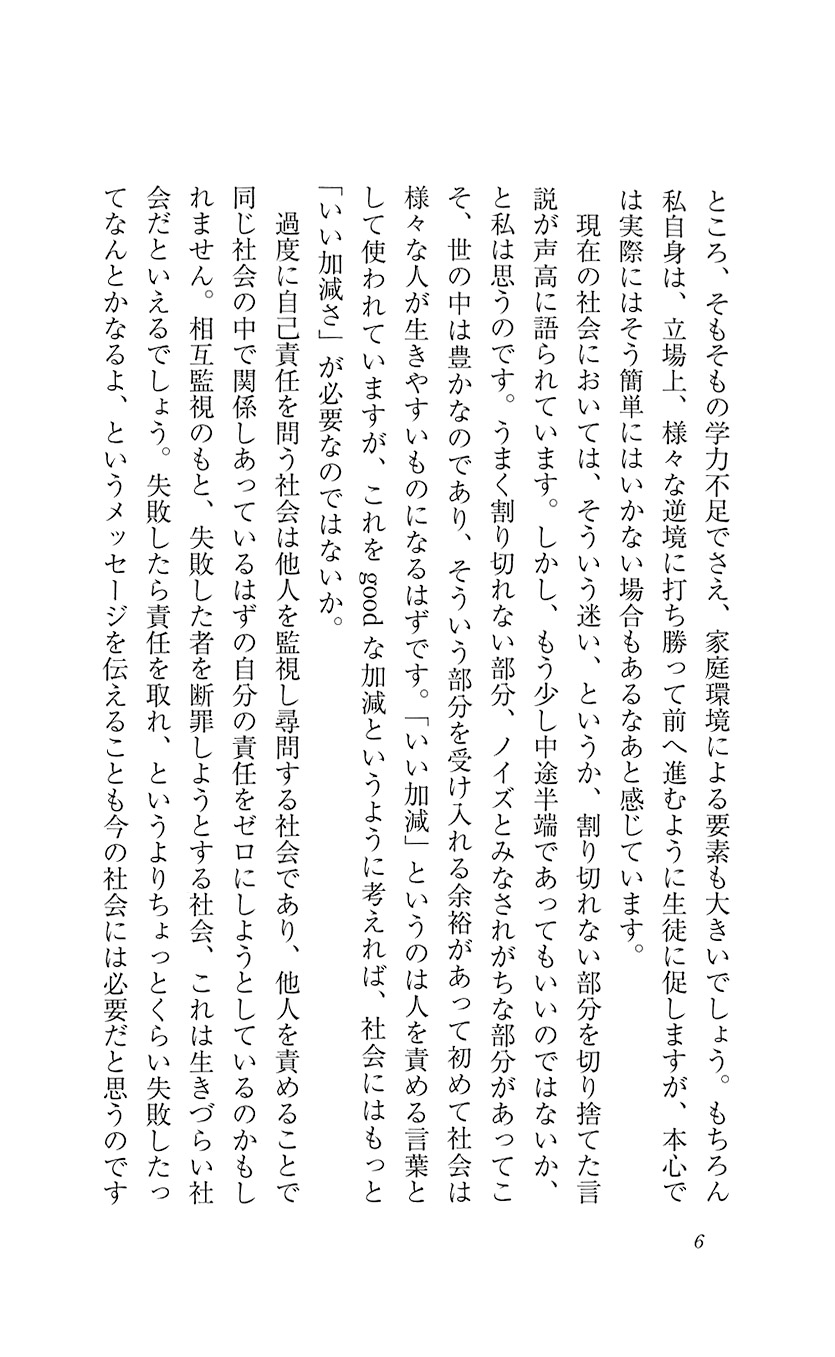 ところ、そもそもの学力不足でさえ、家庭環境による要素も大きいでしょう。もちろん
私自身は、立場上、様々な逆境に打ち勝って前へ進むように生徒に促しますが、本心で
は実際にはそう簡単にはいかない場合もあるなあと感じています。
現在の社会においては、そういう迷い、というか、割り切れない部分を切り捨てた言
説が声高に語られています。しかし、もう少し中途半端であってもいいのではないか、
と私は思うのです。うまく割り切れない部分、ノイズとみなされがちな部分があってこ
そ、世の中は豊かなのであり、そういう部分を受け入れる余裕があって初めて社会は
様々な人が生きやすいものになるはずです。「いい加減」というのは人を責める言葉と
して使われていますが、これを good な加減というように考えれば、社会にはもっと
「いい加減さ」が必要なのではないか。
過度に自己責任を問う社会は他人を監視し尋問する社会であり、他人を責めることで
同じ社会の中で関係しあっているはずの自分の責任をゼロにしようとしているのかもし
れません。相互監視のもと、失敗した者を断罪しようとする社会、これは生きづらい社
会だといえるでしょう。失敗したら責任を取れ、というよりちょっとくらい失敗したっ
てなんとかなるよ、というメッセージを伝えることも今の社会には必要だと思うのです
6